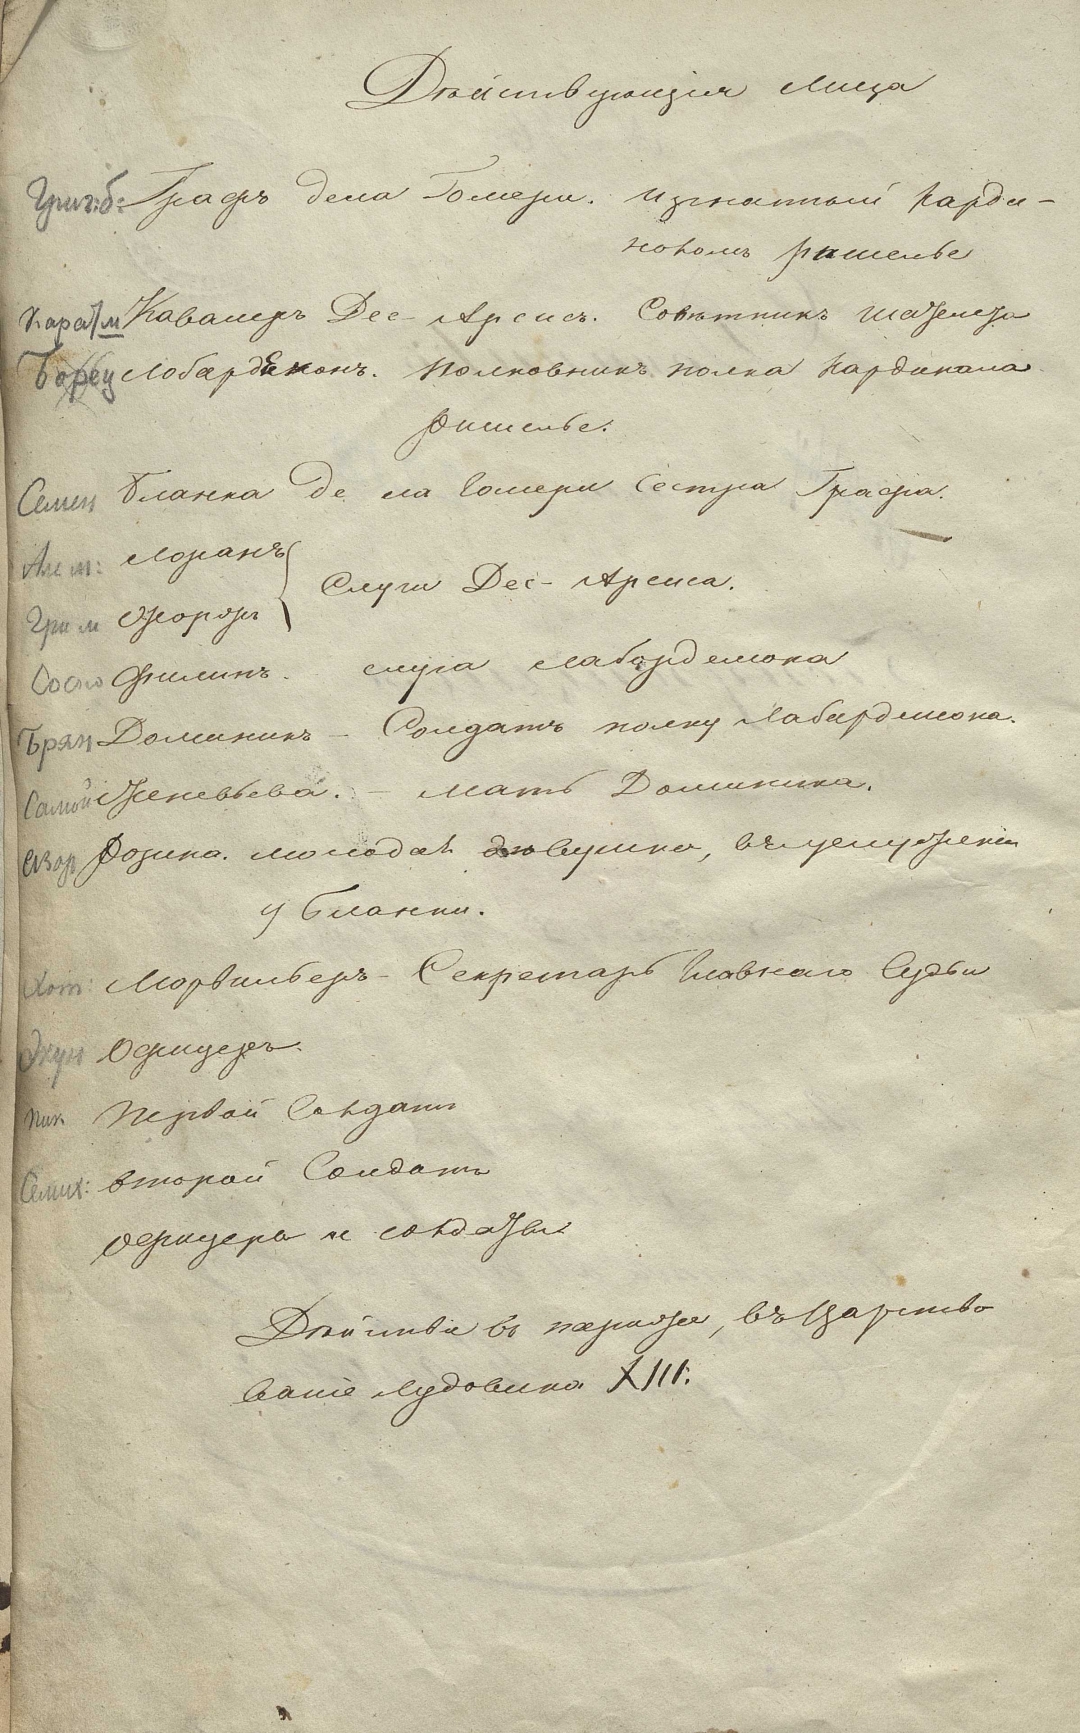 Дѣйствующія лица
Григ: б: Графъ дела Гомери. изгнатый карди-
наломъ Ришелье
Карат м Кавалеръ Дес-Арсисъ. Совѣтникъ Шатлета
Борец Лобардемонъ. Полковникъ полка Кардинала
Ришелье.
Семен Бланка де ла Гомери Сестра Графа.
Ал м: Лоранъ
Слуги Дес-Арсиса.
Гри м Жоржъ
Сосно Филипъ. слуга Лабардемона
Брян Доминикъ - Солдатъ полку Лабардемона.
Самой Женевьева. - Мать Доминика.
Розина. молодая дѣвушка, въ услуженіи
у Бланки.
Хот: Морвильеръ - Секретарь Главнаго Судьи
Экун Офицеръ.
Ник Первой Солдатъ
Семих: второй Солдатъ
Офицеры и солдаты.
Дѣйствіе въ Парижѣ, въ царство
ваніе Лудовика XIII.